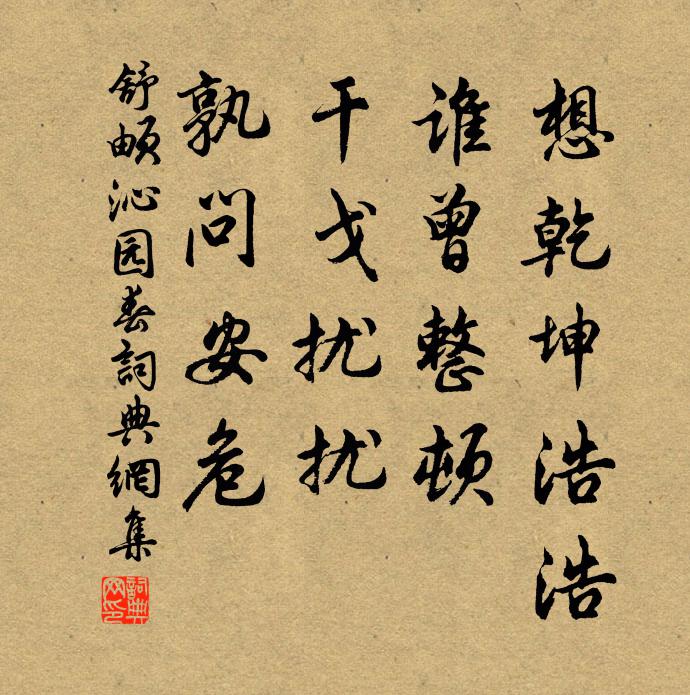 想乾坤浩浩
谁曾整顿
干戈扰扰
孰问安危
舒頔沁园春詞典網集
詞典网印